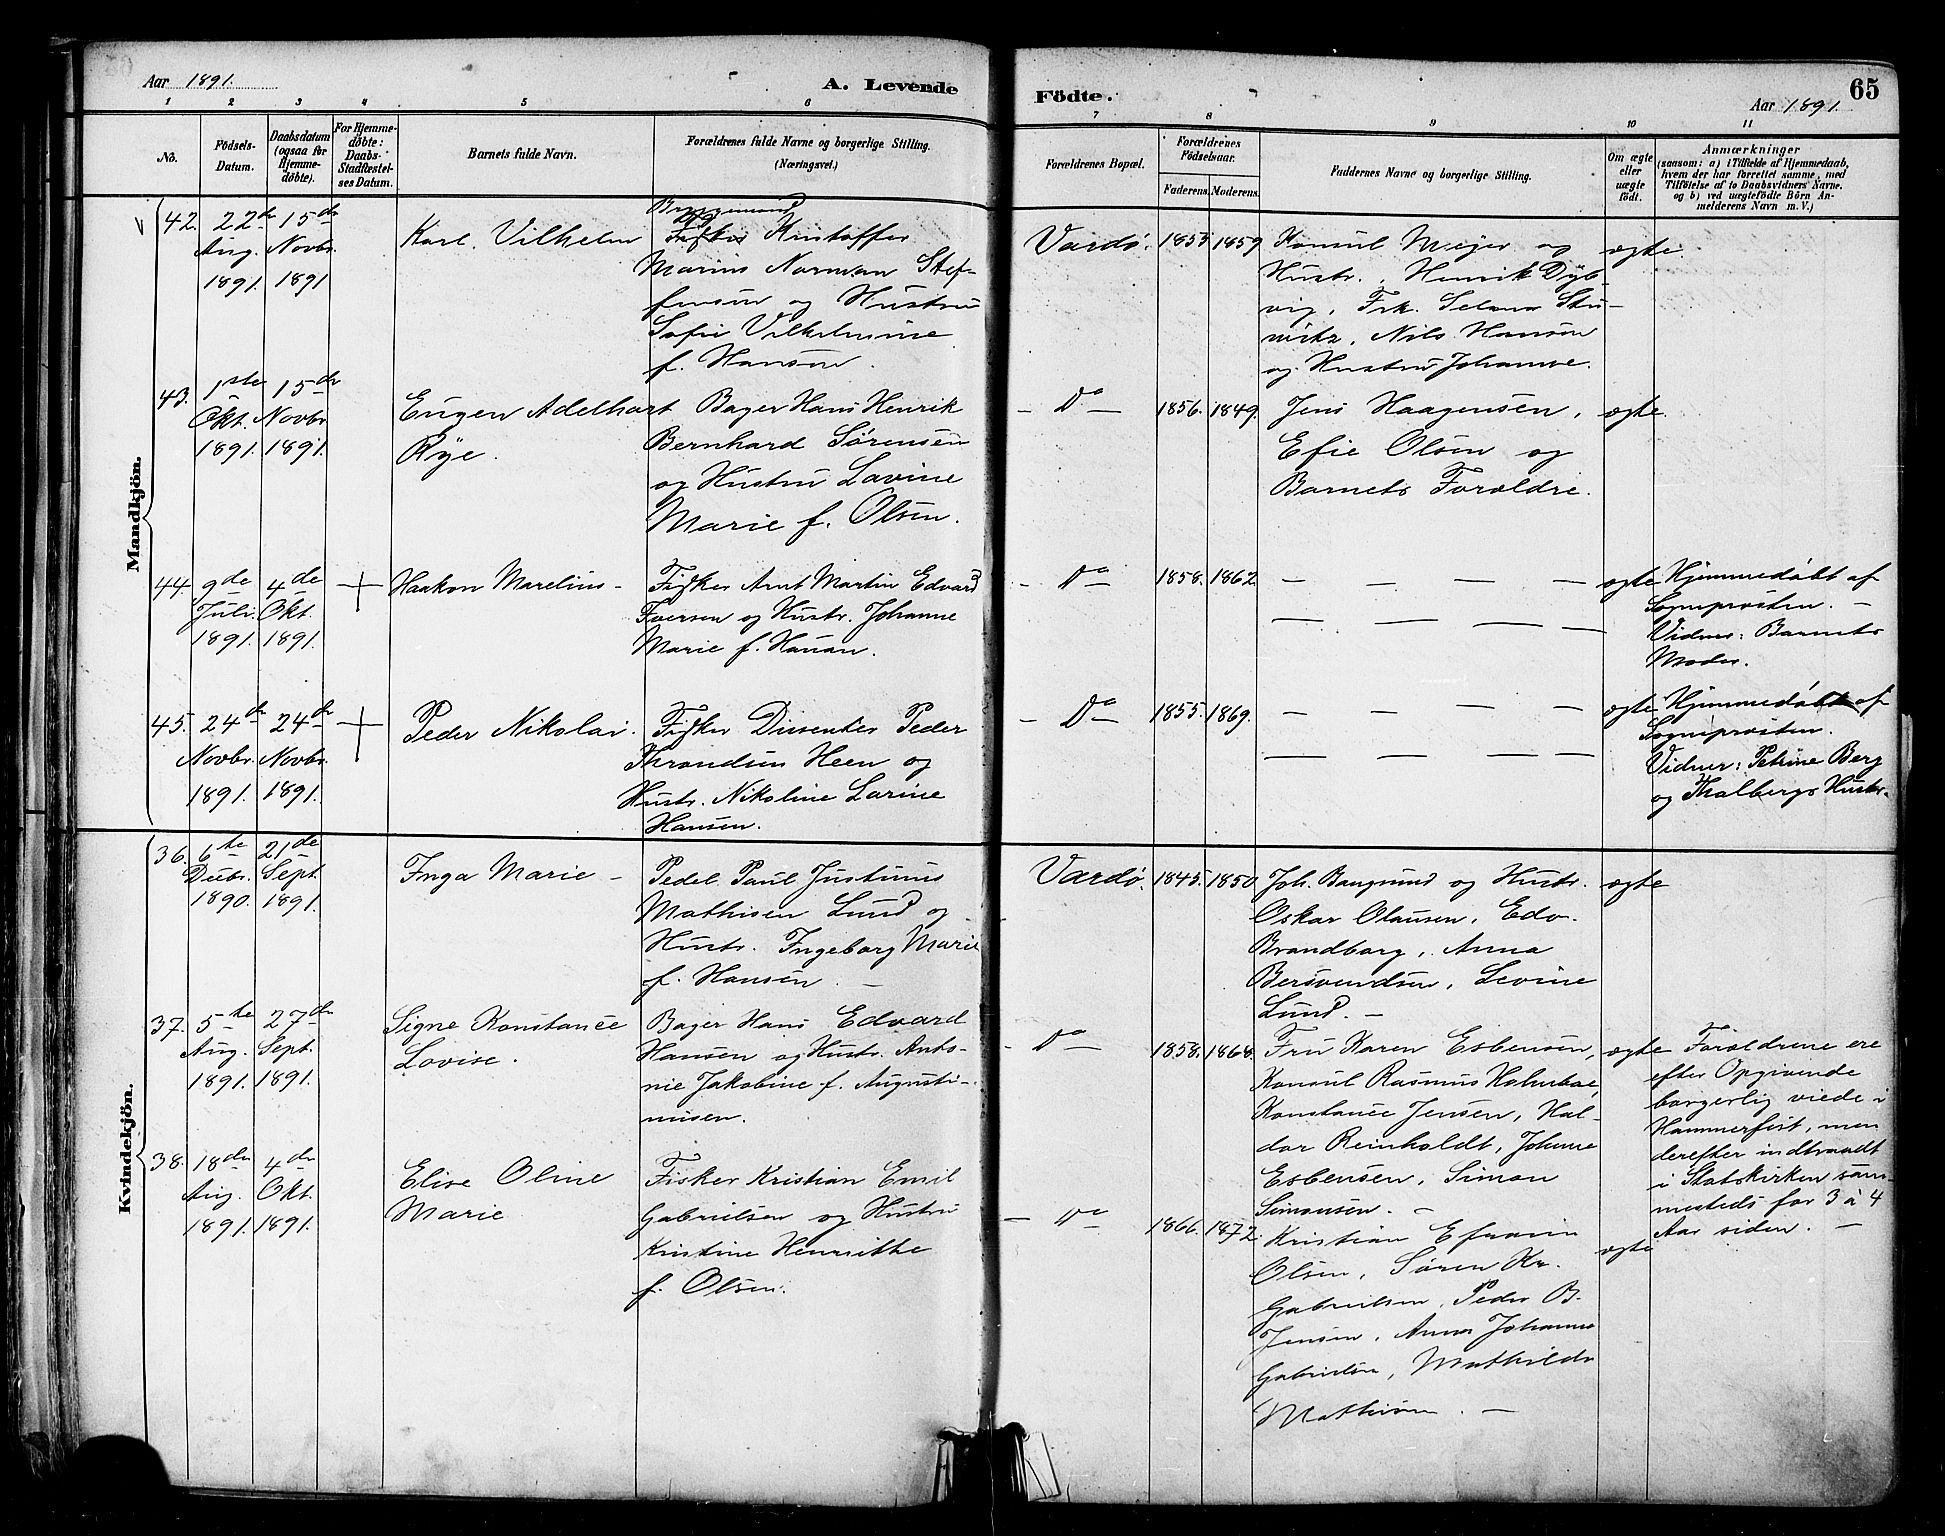 Aar 1891.
A. Levende
Födte.
65
Aar 1891.
1 2 3 4 5 6 7 8 9 10 11
No.
Födsels-
Datum.
Daabsdatum
(ogsaa for
Hjemme-
døbte).
For Hjemme-
døbte:
Daabs-
Stadfæstel-
ses Datum.
Barnets fulde Navn.
Forældrenes fulde Navne og borgerlige Stilling.
(Næringsvei.)
Forældrenes Bopæl.
Forældrenes
Födselsaar.
Faderens. Moderens.
Faddernes Navne og borgerlige Stilling.
Om ægte
eller
uægte
födt.
Anmærkninger
(saasom: a) i Tilfælde af Hjemmedaab,
hvem der har forrettet samme, med
Tilføielse af to Daabsvidners Navne.
og b) ved uægtefödte Börn An-
melderens Navn m. V.)
Mandkjön.
42. 22de
Aug.
1891.
15de
Novbr.
1891
Karl Vilhelm
Bryggemand
og
Fisker Kristoffer
Marius Norman Stef-
fensen og Hustru
Sofie Vilhelmine
f. Hansen.
Vardø. 1853 1859
Konsul Meyer og
Hustr., Henrik Dyb-
vig, Frk. Selma Stu-
witz, Nils Hansen
og Hustru Johanne.
ægte.
43. 1ste
Okt.
1891.
15de
Novbr.
1891.
Eugen Adelhart
Rye.
Bager Hans Henrik
Bernhard Sørensen
og Hustru Lavine
Marie f. Olsen.
– Do – 1856. 1849.
Jens Haagensen,
Efie Olsen og
Barnets Forældre.
ægte.
44. 9de
Juli
1891.
4de
Okt.
1891.
+
Haakon Marelius –
Fisker Arnt Martin Edvard
Iversen og Hustr. Johanne
Marie f. Hanan.
– Do – 1858. 1862.
– – – –
– – – –
ægte
Hjemmedøbt af
Sogneprosten. –
Vidner: Barnets
Moder.
45. 24de
Novbr.
1891.
24de
Novbr.
1891.
+
Peder Nikolai.
Fisker Dissenter Peder
Throndsen Heen og
Hustr. Nikoline Larine
Hansen.
– Do – 1855. 1869.
– – – –
– – – –
ægte
Hjemmedøbt af
Sogneprosten.
Vidner: Petrine Berg
og Thalbergs Hustr.
Kvindekjön.
36. 6te
Decbr.
1890.
21de
Sept.
1891.
Inga Marie –
Pedel Paul Justinus
Mathisen Lund og
Hustr. Ingeborg Marie
f. Hansen. –
Vardø. 1845. 1850
Joh. Bangsund og Hustr.
Oskar Olausen, Edv.
Brandborg, Anna
Bersvendsen, Levine
Lund. –
ægte
37. 5te
Aug.
1891.
27de
Sept.
1891.
Signe Konstance
Lovise.
Bager Hans Edvard
Hansen og Hustr. Anto-
nie Jakobine f. Augusti-
nusen.
– Do – 1858. 1868.
Fru Karen Esbensen,
Konsul Rasmus Holmboe,
Konstance Jensen, Hal-
dor Reinholdt, Johanne
Esbensen, Simon
Simonsen. –
ægte
Forældrene ere
efter Opgivende
borgerlig viede i
Hammerfest, men
derefter indtraadt
i Statskirken sam-
mesteds for 3 à 4
Aar siden. –
38. 18de
Aug.
1891.
4de
Okt.
1891.
Elise Oline
Marie
Fisker Kristian Emil
Gabrielsen og Hustru
Kristine Henriette
f. Olsen.
– Do – 1866. 1872.
Kristian Efraim
Olsen, Søren Kr.
Gabrielsen, Peder B.
Jensen, Anna Johanna
Gabrielsen, Mathilde
Mathisen. –
ægte